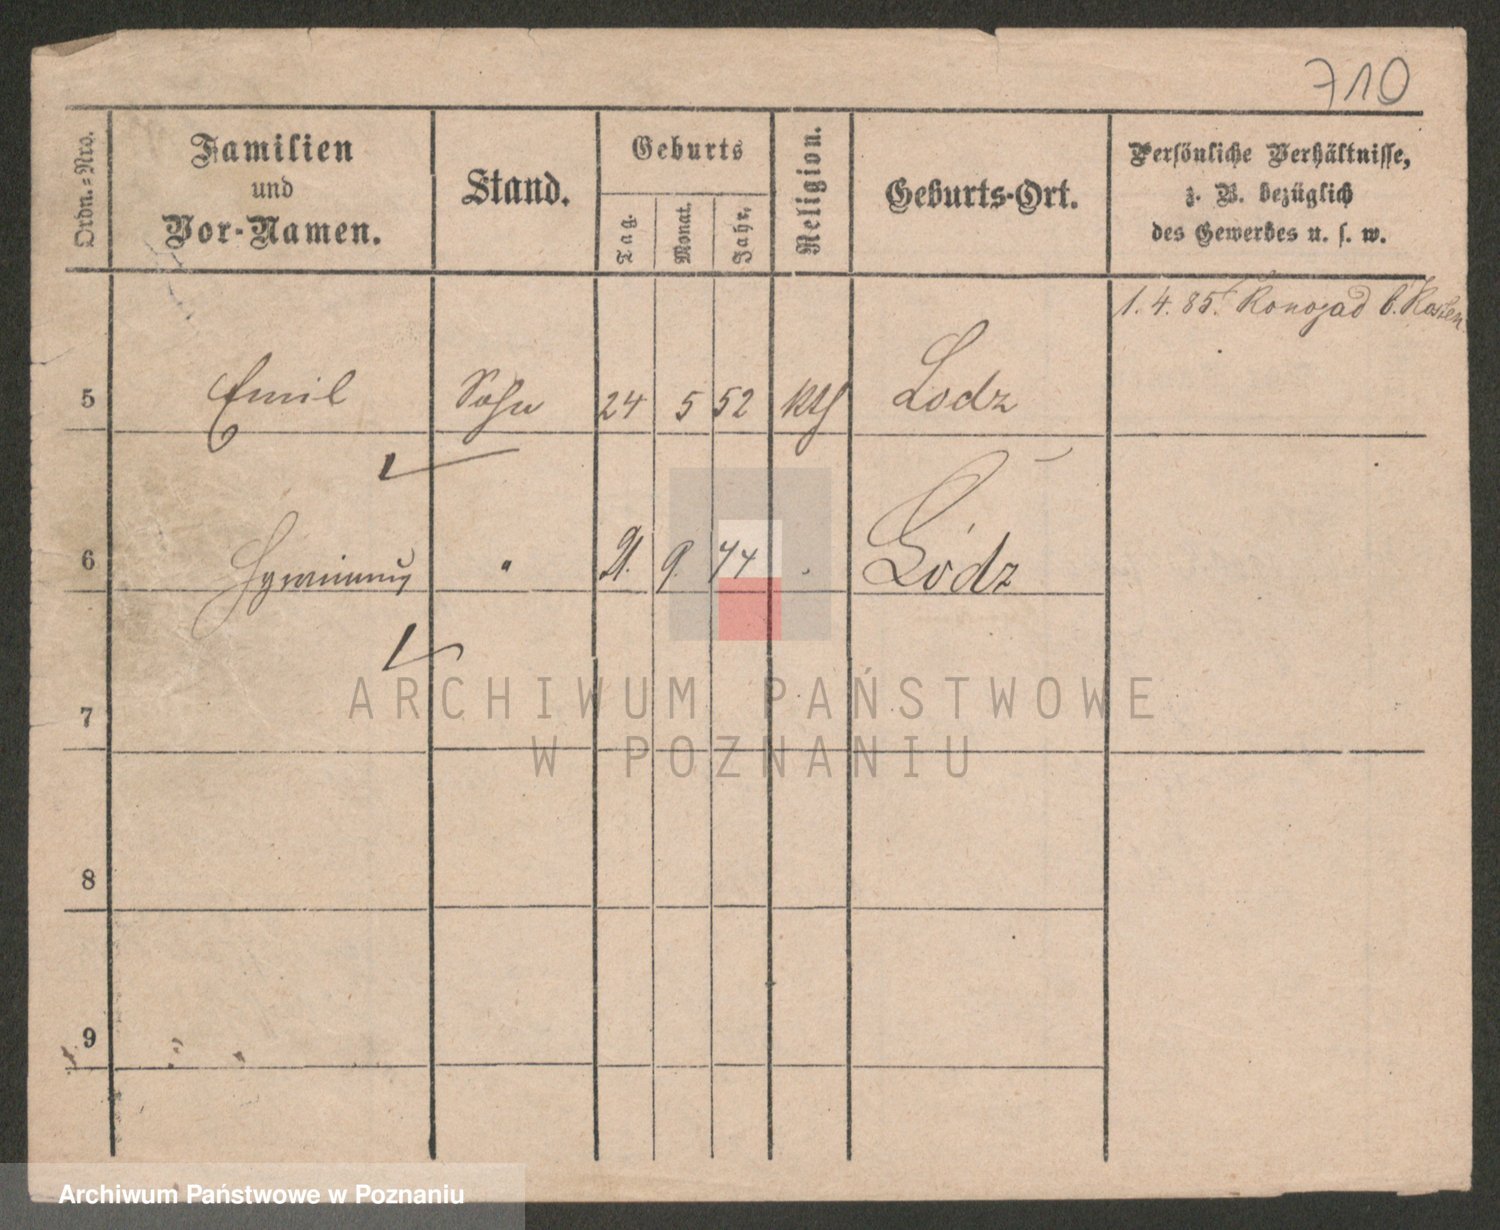 710
Ordn.=Nro.
Familien
und
Vor-Namen.
Stand.
Geburts
Tag.
Monat.
Jahr.
Religion.
Geburts-Ort.
Persönliche Verhältnisse,
z. B. bezüglich
des Gewerbes u. s. w.
1. 4. 85. Konojad b. Kosten
5 Emil Sohn 24 5 52 kth Lodz
6 " 21. 9. 74 Lódz
7
8
9
ARCHIWUM PAŃSTWOWE
W POZNANIU
Archiwum Państwowe w Poznaniu